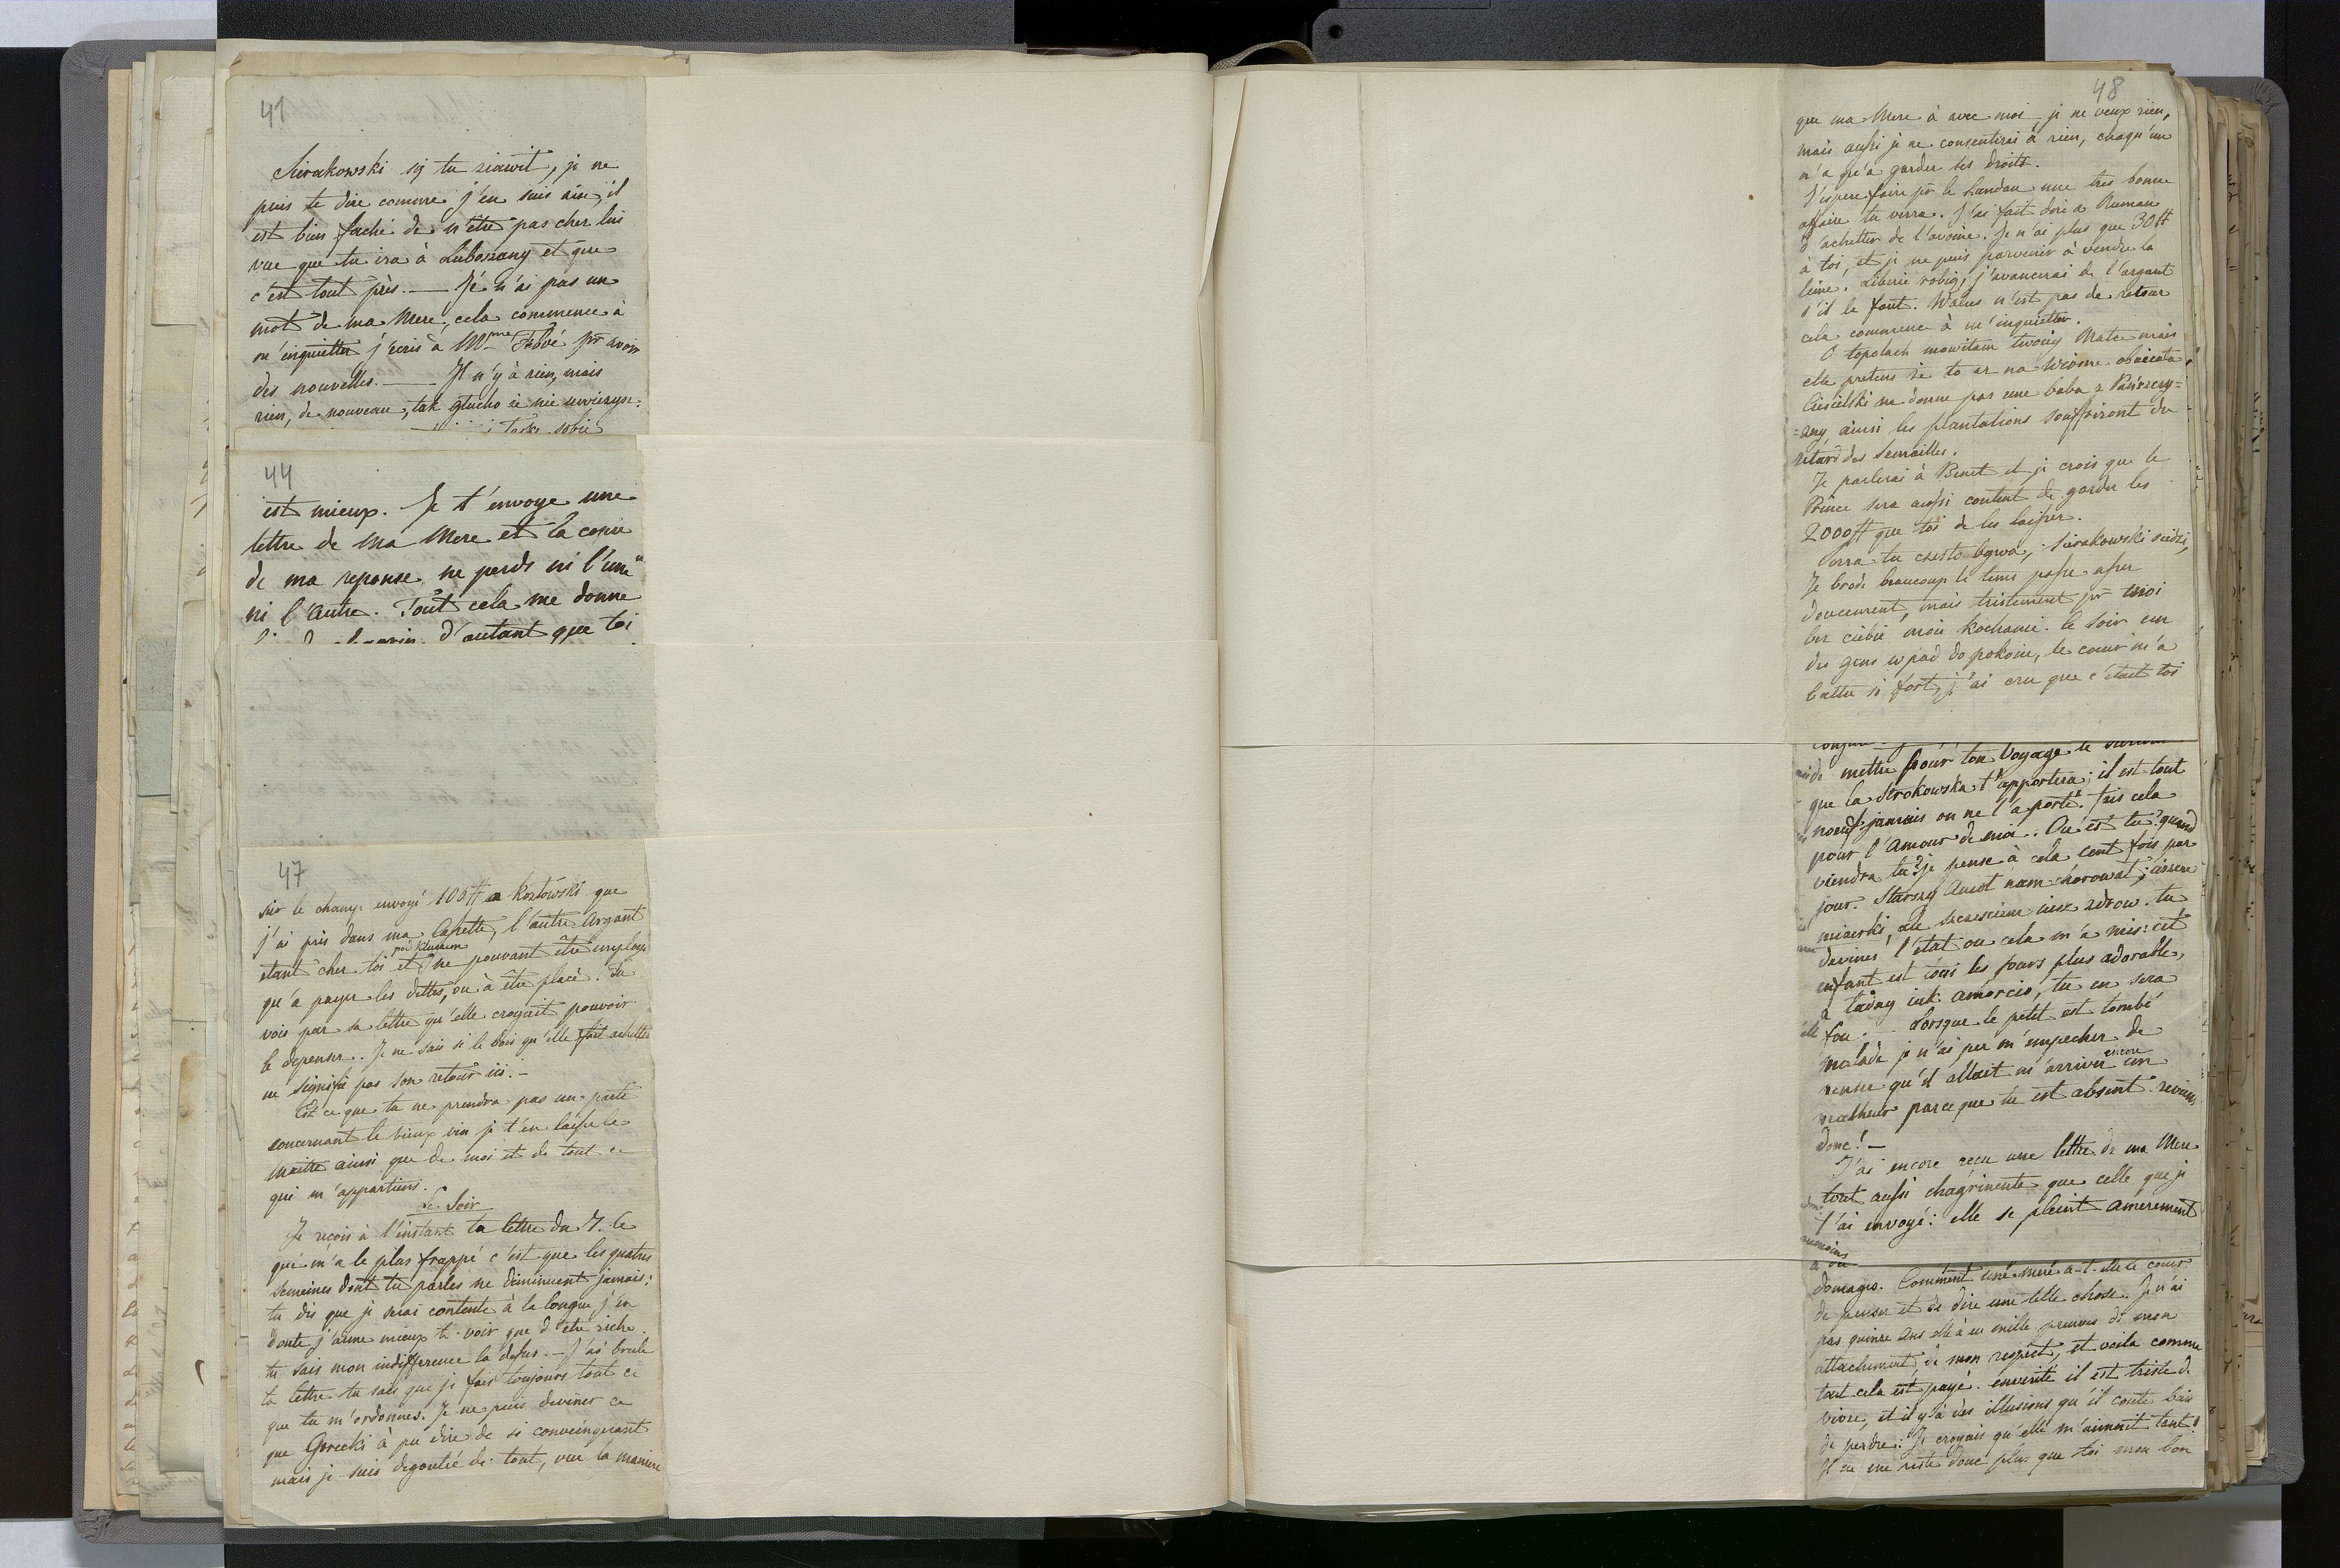 41
Sierakowski są tu ziawił, je ne
puis te dire comme j'en suis aise, il
est bien faché de n'être pas cher lui
vue que tu ira à Luboszany et que
c'est tout près. — Jé n'ai pas un
mot de ma Mere, cela commence à
m'inquietter j'ecris à Mme pr avoir
des nouvelles. — Il n'y à rien, mais
rien, de nouveau, tak głucho że nie uwierzysz
44
est mieux. Je t'envoye une
lettre de Ma Mere et la copie
de ma reponse, ne perds ni l'une
ni l'autre. Tout cela me donne
d'autant que toi
47
sur le champ envoyé 100# a Kozłowski que
j'ai pris dans ma Casette, l'autre argant
étant cher toi pod kluczem et ne pouvant être employé
qu'a payer les dettes, ou à être placé. Tu
vois par sa lettre qu'elle croyait pouvoir
le depenser. Je ne sais si le bois qu'elle fait achetter
ne signifie pas son retour ici. —
Est ce que tu ne prendra pas un parti
concernant le vieux vin je t'en laisse le
maitre ainsi que de moi et de tout ce
qui m'appartiens.
Le Soir
Je reçois à l'instant ta lettre du 7. ce
qui m'a le plus frappé c'est que les quatres
semaines dont tu parles ne diminuent jamais;
tu dis que je serai contente à la longue j'en
doute, j'aime mieux te voir que d'etre riche.
tu sais mon indifference la desus. — J'ai brulé
ta lettre tu sais que je fais toujours tout ce
que tu m'ordonnes. Je ne puis deviner ce
que Gorecki à pu dire de si convainquant
mais je suis degoutée de tout, vue la maniere
48
que ma Mere à avec moi, je ne veux rien,
mais aussi je ne consentirai à rien, chaqu'un
n'a qu'à garder ses droits.
J'espere faire pr le Landau une tres bonne
affaire tu verra. J'ai fait dire a Ruman
d'achetter de l'avoine. Je n'ai plus que 30#
à toi, et je ne puis parvenir à vendre la
leine. robię; j'avancerai de l'argant
s'il le faut. n'est pas de retour
cela commence à m'inquietter.
O topolach mowiłam twoiey Matce mais
elle pretens że to aż na Wiosne obiecała,
Ciesielski ne donne pas une baba z
=any, ainsi les plantations souffriront du
retard des Semailles.
Je parlerai à Benet et je crois que le
Prince sera aussi content de garder les
2000# que toi de les laisser.
tu często bywa, Sierakowski siedzi,
Je brode beaucoup le tems passe assez
doucement, mais tristement pr moi
bez ciebie moie kochanie. le soir un
des gens wpad do pokoiu, le cœur m'a
battu si fort, j'ai cru que c'était toi
de mettre pour ton voyage le
que la Strokowska t'apportera; il est tout
noeuf jamais on ne l'a porté. Fais cela
pour l'Amour de moi. Ou est tu? quand
viendra tu? je pense à cela cent fois par
jour. Starszy nam chorował,
ale szczesciem iusz zdrow. tu
devines l'état ou cela m'a mis: cet
enfant est tous les jours plus adorable,
a ładny iak amorcio, tu en sera
fou. — Lorsque le petit est tombé
malade je n'ai pu m'empecher de
penser qu'il allait m'arriver encore un
malheur parceque tu est absent. reviens
donc! —
J'ai encore recu une lettre de ma Mere
tout aussi chagrinente que celle que je
t'ai envoyé: elle se pleint amerement
domages. Comment une mere a-t-elle le cœur
de penser et de dire une telle chose. Je n'ai
pas quinze Ans elle à eu mille preuves de mon
attachement de mon respect, et voila comme
tout cela est payé. enverité il est triste de
vivre, et il y'a des illusions qu'il coute bien
de perdre: Je croyais qu'elle m'aimait tant!
Il ne me reste donc plus que toi mon bon